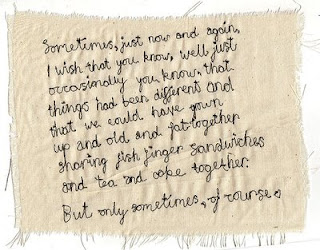 Sometimes, just now and again,
I wish that you know, well just
occasionally you know, that
things had been different and
that we could have grown
up and old and fat together
sharing fish finger sandwiches
and tea and cake together.
But only sometimes, of course.